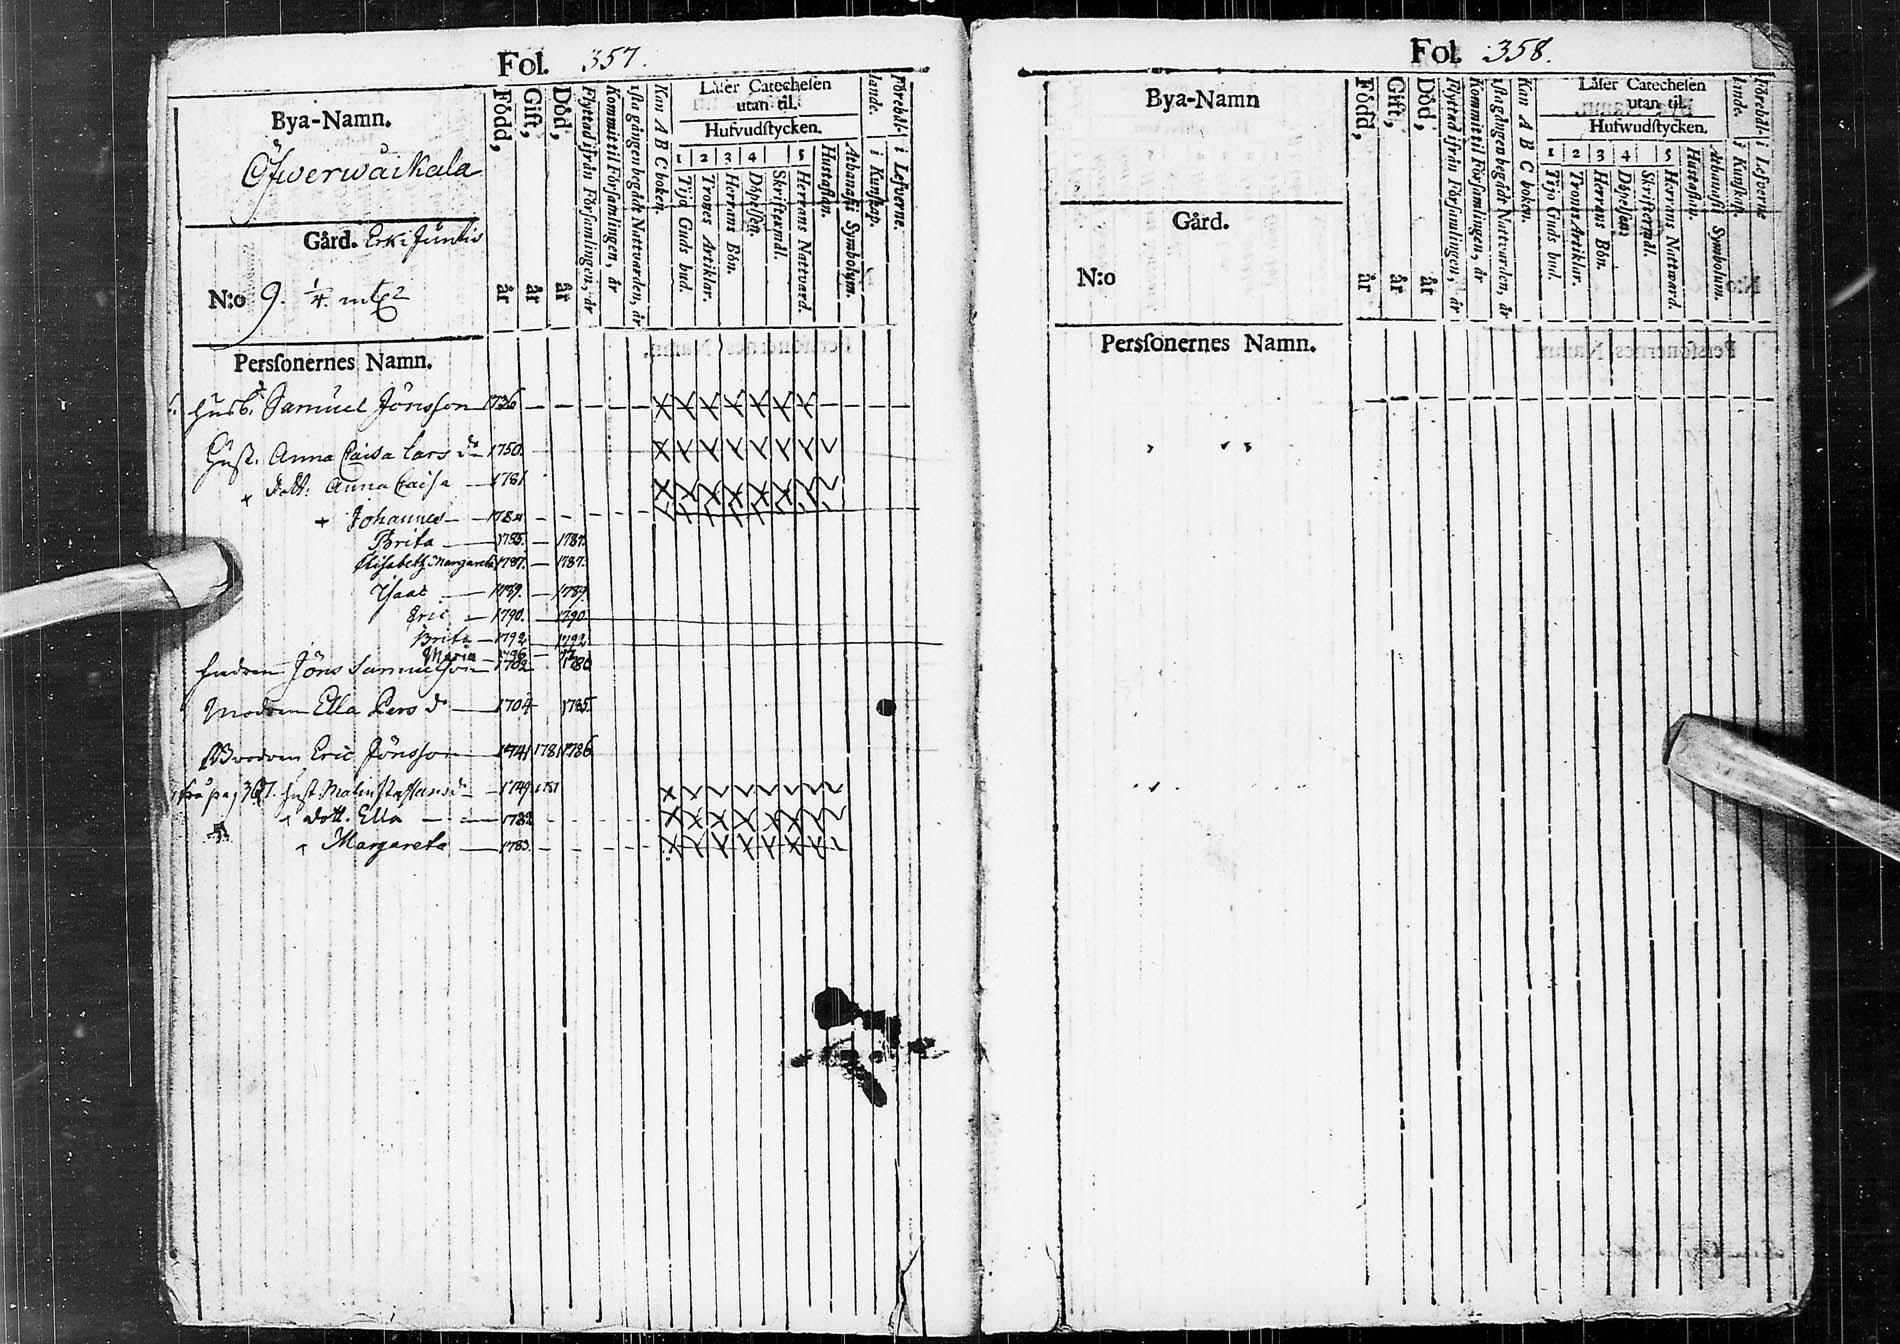 Fol. 357.
Bya-Namn.
Öfwerwåikala
Gård. Erki Juntis
N:o 9. 1/4 mtl
Född, år
Gift, år
Död, år
Flyttad ifrån Församlingen, år
Kommit til Församlingen, år
1sta gången begådt Nattvarden, år
Kan A B C boken.
Läser Catechesen
utan til.
Hufvudstycken.
1 2 3 4 5
Tijo Guds bud.
Trones Artiklar.
Herrans Bön.
Döpelsen.
Skriftermål.
Herrans Nattvard.
Hustaflan.
Athanasii Symbolum.
Förehållande.
i Kunskap.
i Lefverne.
Personernes Namn.
Husb. Samuel Jönsson 1736
Hust. Anna Caisa Lars dr 1750.
+ dott. Anna Caisa 1781
+ Johannes 1784
Brita 1785. 1787.
Elisabeth Margareta 1787. 1787.
Isaac 1789. 1789.
Eric 1790. 1790
Brita 1792 1792
Maria 1796
Fadren Jöns Samuelson 1702 1786
Modren Ella Pers dr 1704 1785.
Brodren Eric Jönsson 1741 1781 1786
frå pag 367. hust. Malin Staffans dr 1749 1781
dott. Ella 1782
Margareta 1783.
Fol. 358.
Bya-Namn
Gård.
N:o
Född, år
Gift, år
Död, år
Flyttad ifrån Församlingen, år
Kommit til Församlingen, år
1sta gången begådt Nattvarden, år
Kan A B C boken.
Läser Catechesen
utan til.
Hufwudstycken.
1 2 3 4 5
Tijo Guds bud.
Trones Artiklar.
Herrans Bön.
Döpelsen.
Skriftermål.
Herrans Nattward.
Hustaflan.
Athanasii Symbolum.
Förehållande.
i Kunskap.
i Lefverne
Personernes Namn.